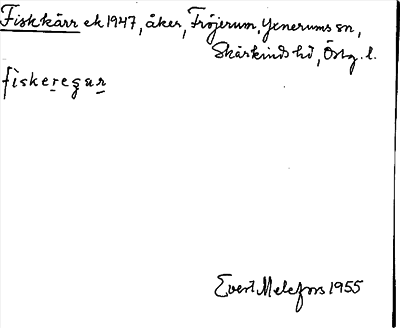 Fiskkärr ek 1947, åker, Fröjerum, Yxnerums sn,
Skärkinds hd, Östg. l.
fiskeregar
Evert Melefors 1955